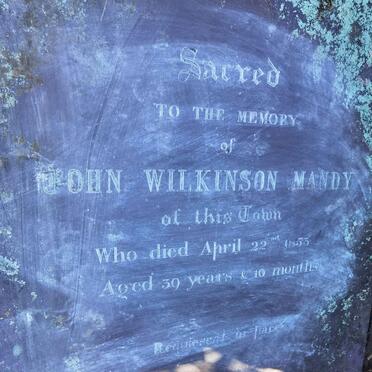 Sacred
TO THE MEMORY
of
JOHN WILKINSON MANDY
of this Town
Who died April 22nd
Aged 39 years & 10 months
Requiescat in pace